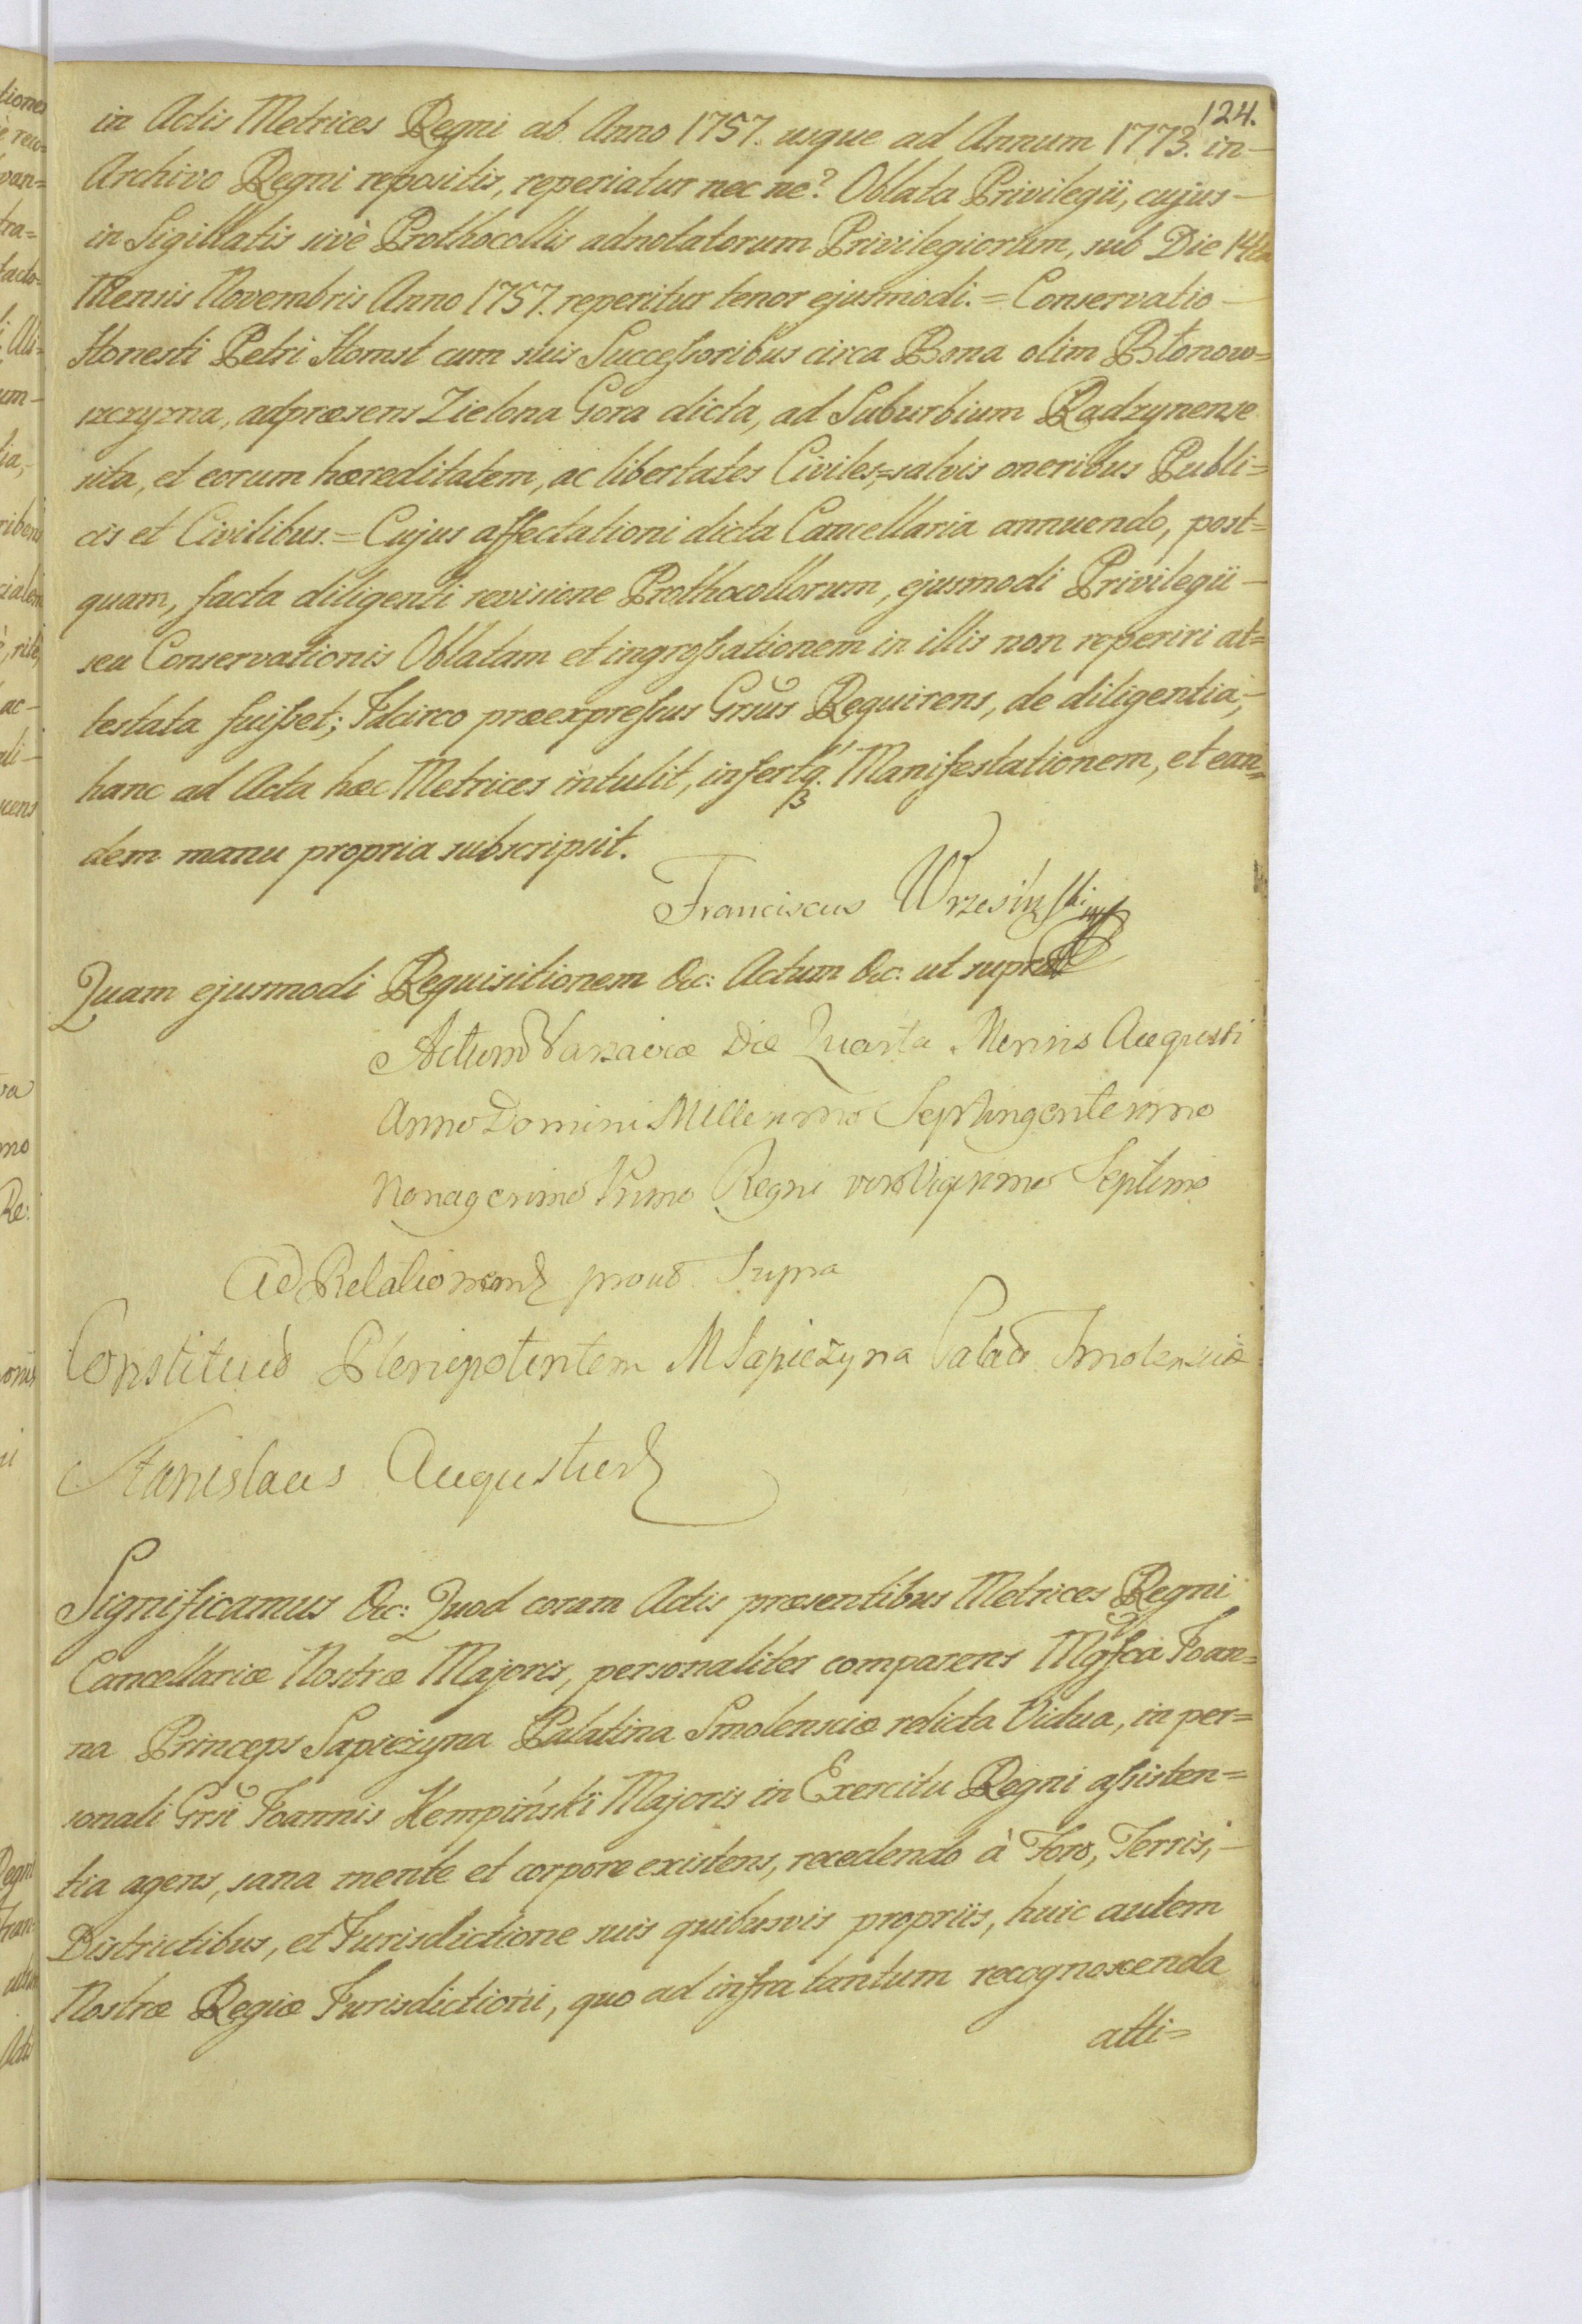 124.
in Actis Metrices Regni ab Anno 1757. usque ad Annum 1773. in-
Archivo Regni repositis, reperiatur nec ne? Oblata Privilegii, cujus-
in Sigillatis sivè Prothocollis adnotatorum Privilegiorum, sub Die 14ta
Mensis Novembris Anno 1757. reperitur tenor ejusmodi. = Conservatio-
Honesti Petri Homst cum suis Successoribus circa Bona olim Błonow=
szczyzna, adpræsens Zielona Gora dicta, ad Suburbium Radzynense
sita, et eorum hæreditatem, ac libertates Civiles,=salvis oneribus Publi=
cis et Civilibus. = Cujus affectationi dicta Cancellaria annuendo, post=
quam, facta diligenti revisione Prothocollorum, ejusmodi Privilegii-
seu Conservationis Oblatam et ingrossationem in illis non reperiri at=
testata fuisset; Idcirco præexpressus Grsus Requirens, de diligentia,-
hanc ad Acta hæc Metrices intulit, infertq. Manifestationem, et ean=
dem manu propria subscripsit.
Franciscus Wrzesiński
Quam ejusmodi Requisitionem &c: Actum &c. ut supra
Actum Varsaviæ Die Quarta Mensis Augusti
Anno Domini Millesimo Septingentesimo
Nonagesimo Primo Regni vero Vigesimo Septimo
Ad Relationem prout Supra
Constituo Plenipotentem MSapieżyna Palat Smolenscie
Stanislaus Augustus
Significamus &c: Quod coram Actis præsentibus Metrices Regni
Cancellariæ Nostræ Majoris, personaliter comparens Mgfca Joan=
na Princeps Sapieżyna Palatina Smolensciæ relicta Vidua, in per=
sonali Grsi Joannis Kempiński Majoris in Exercitu Regni assisten=
tia agens, sana mente et corpore existens, recedendo à Foro, Terris,-
Districtibus, et Jurisdictione suis quibusvis propriis, huic autem
Nostræ Regiæ Jurisdictioni, quo ad infra tantum recognoscenda
atti=